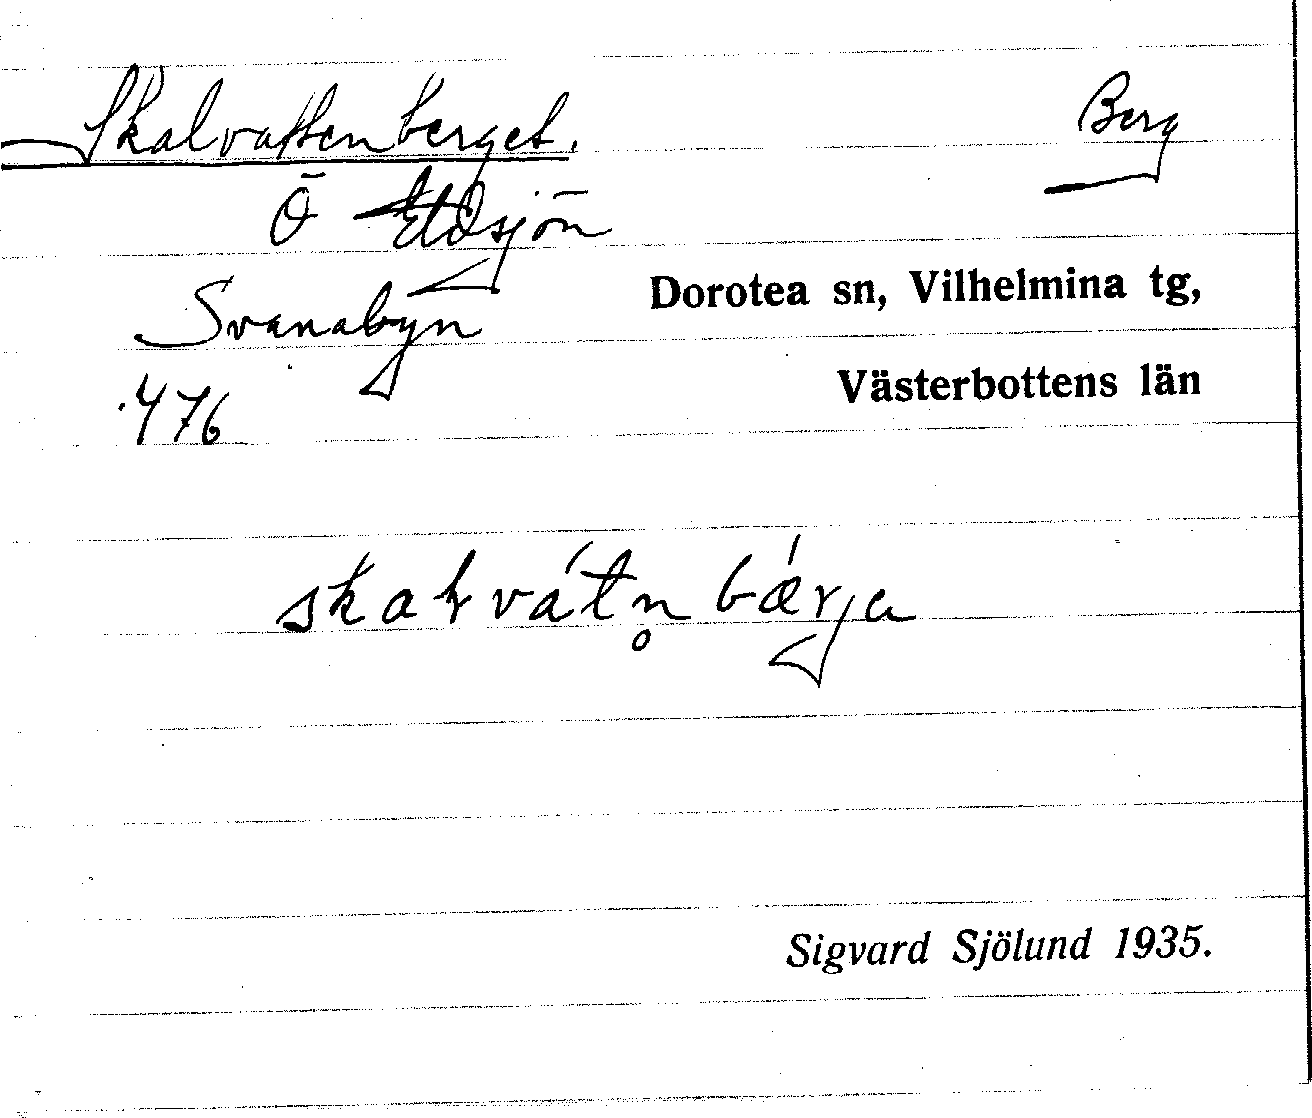 Skalvattenberget. Berg
Ö sjön
Svanabyn
Dorotea sn, Vilhelmina tg,
476
Västerbottens län
Sigvard Sjölund 1935.